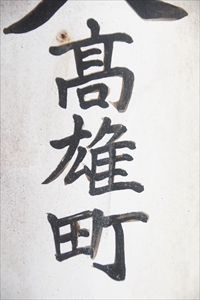 髙雄町